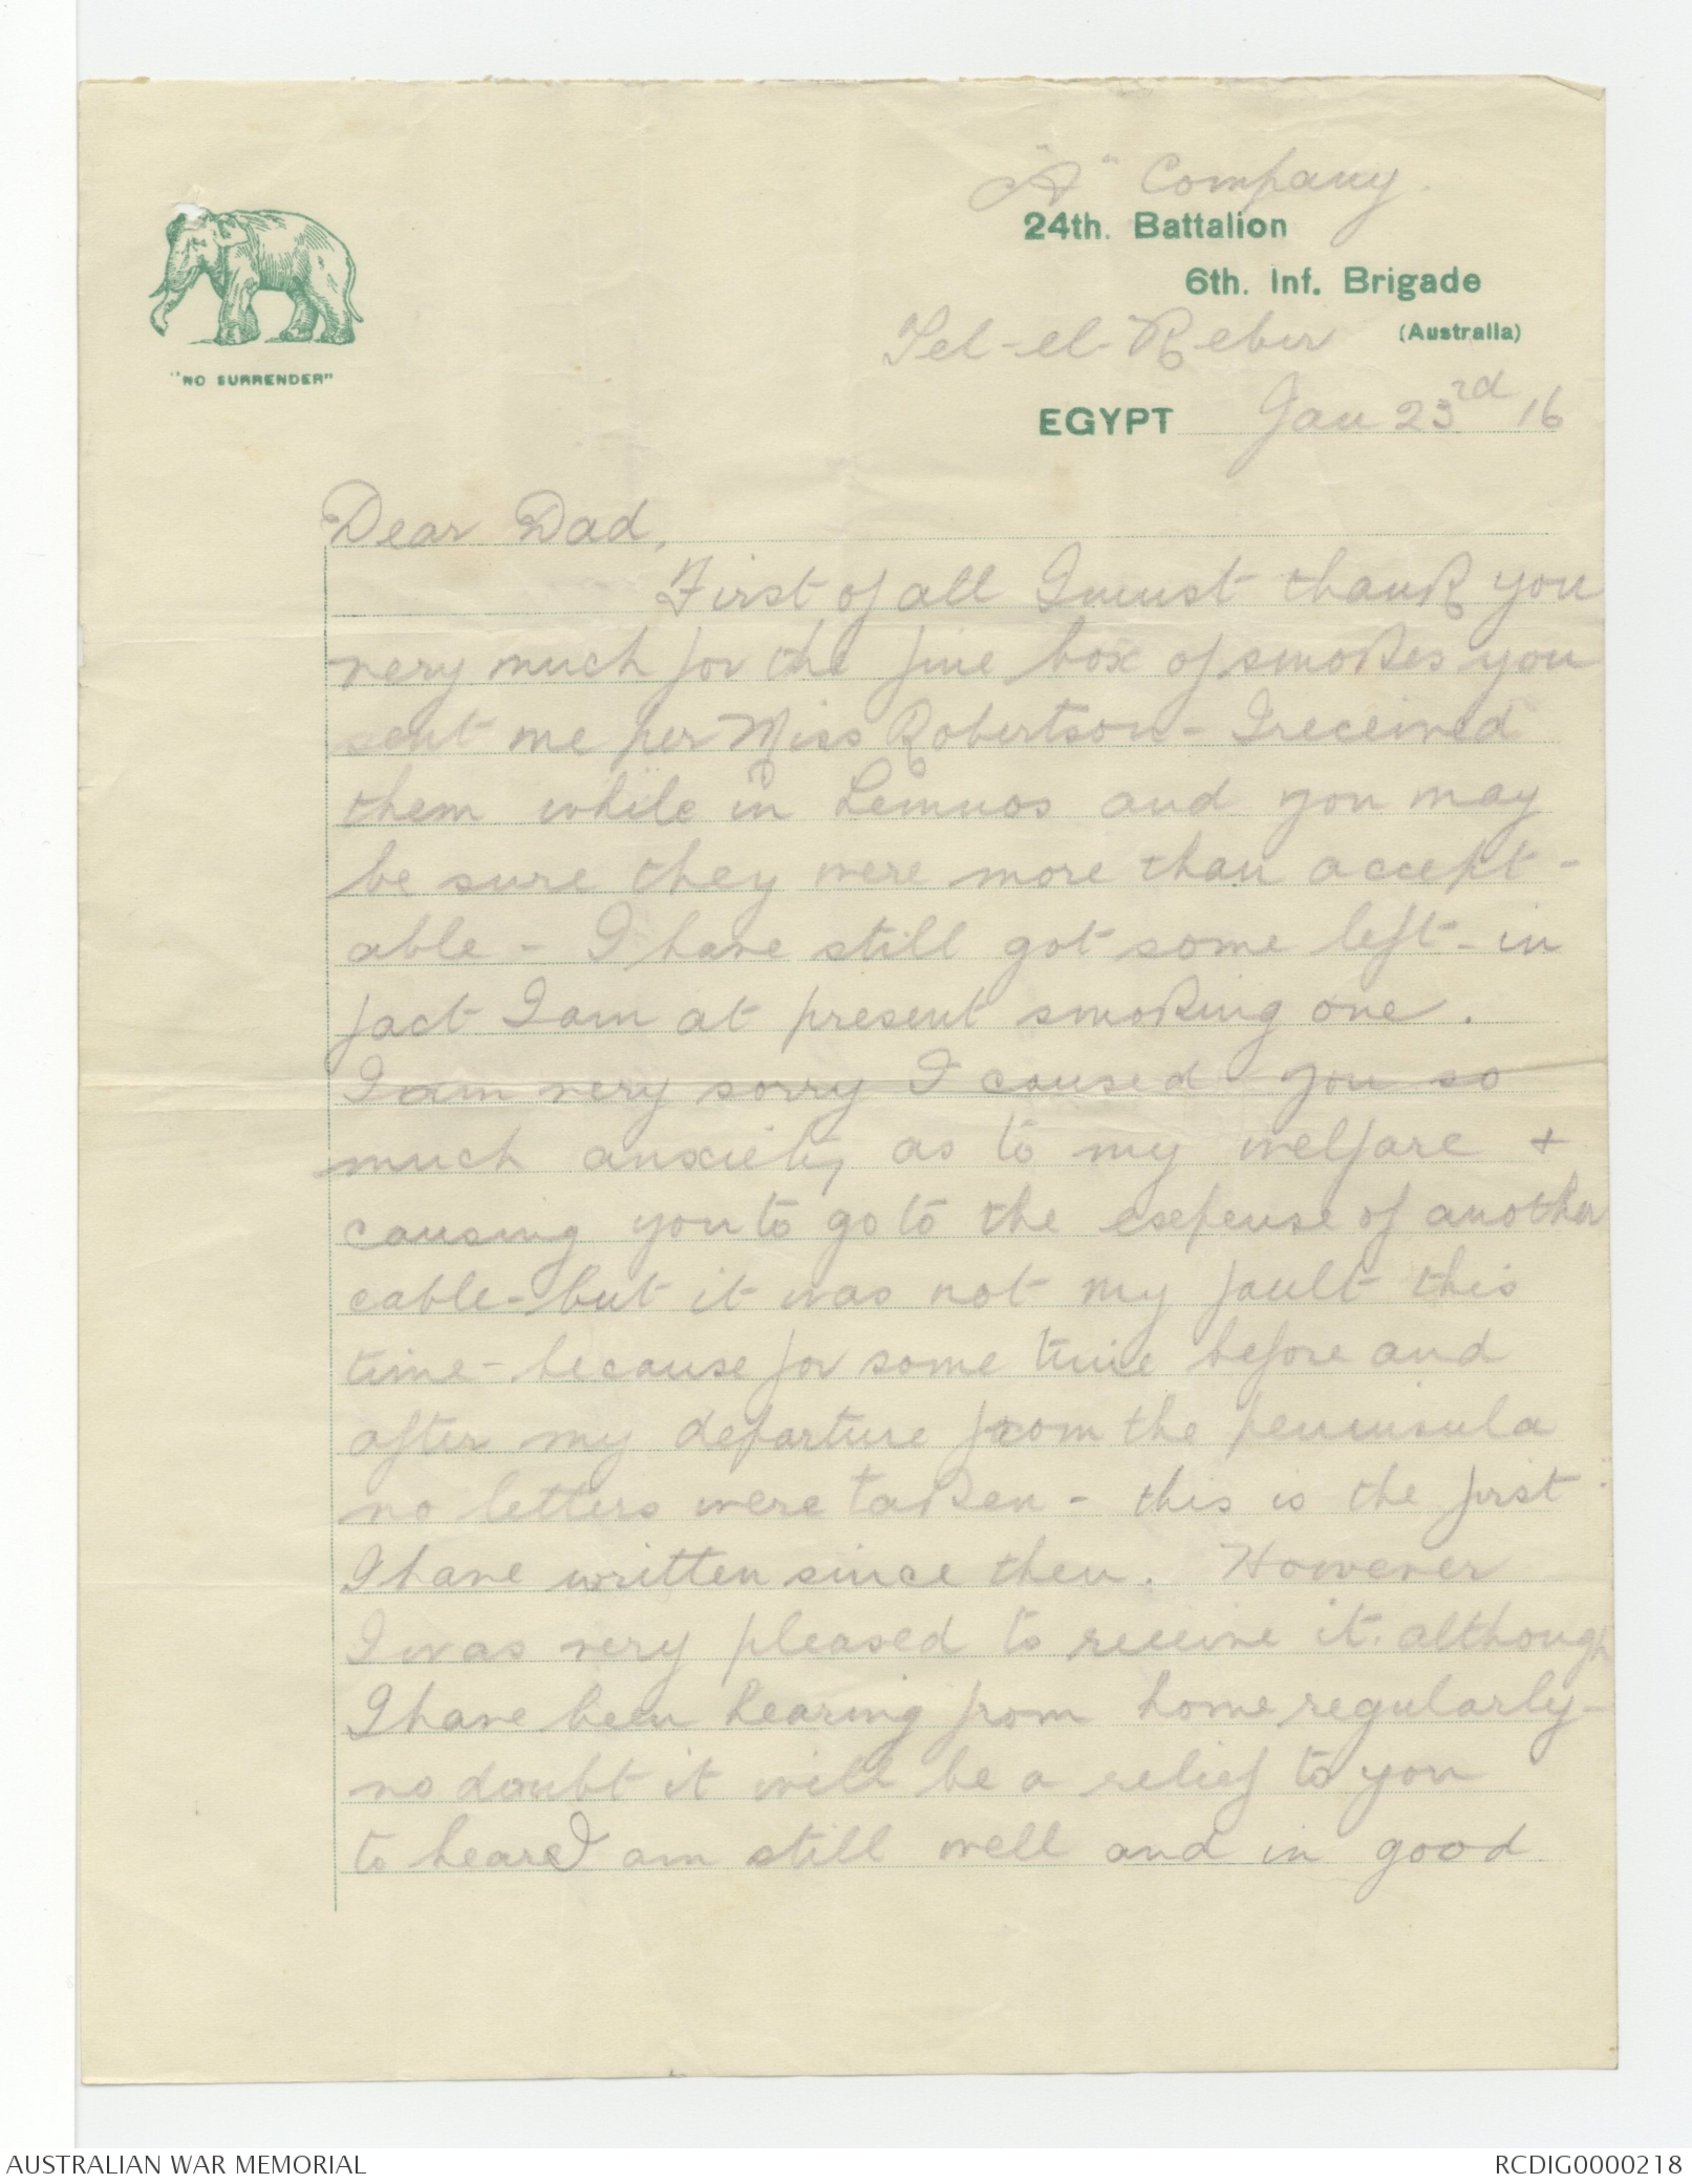 "A" Company.
24th. Battalion
6th. Inf. Brigade
Tel-el-Kebir (Australia)
"NO SURRENDER"
EGYPT Jan 23rd 16
Dear Dad,
First of all I must thank you
very much for the fine box of smokes you
sent me per Miss Robertson - I received
them while in Lemnos and you may
be sure they were more than accept-
able - I have still got some left - in
fact I am at present smoking one.
I am very sorry I caused you so
much anxiety as to my welfare +
causing you to go to the expense of another
cable - but it was not my fault this
time - because for some time before and
after my departure from the peninsula
no letters were taken - this is the first
I have written since then. However
I was very pleased to receive it. although
I have been hearing from home regularly -
no doubt it will be a relief to you
to hear I am still well and in good
AUSTRALIAN WAR MEMORIAL
RCDIG0000218